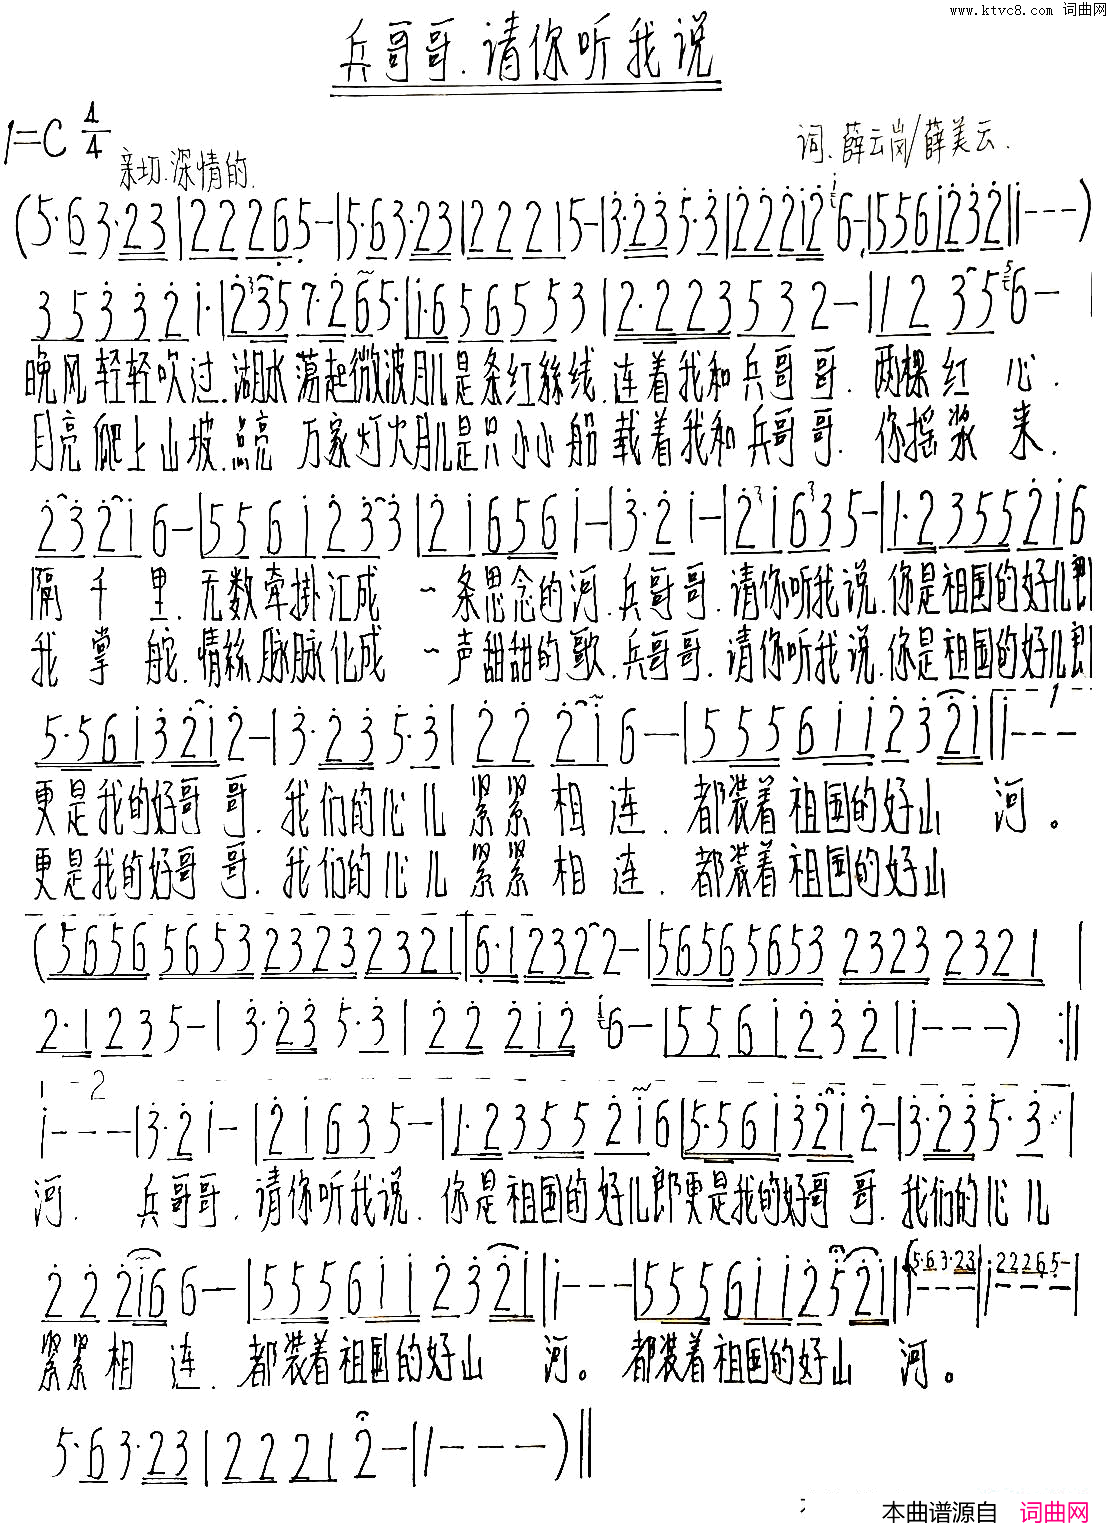 www.ktvc8.com 词曲网
兵哥哥.请你听我说
1=C 4/4
词.薛云岗/薛美云.
亲切.深情的.
(5·6 3·23|2 2 2 6 5-|5·6 3·23|2 2 2 1 5-|3·23 5·3|2 2 2 1 2 6-|5 5 6 1 2 3 2|1---)
3 5 3 3 2 1·|2 3 5 7·2 6 5·|1·6 5 6 5 5 3|2·2 2 3 5 3 2-|1 2 3 5 6-|
晚风轻轻吹过.湖水荡起微波月儿是条红絲线.连着我和兵哥哥.两棵红心.
月亮爬上山坡.点亮万家灯火月儿是只小小船载着我和兵哥哥.你摇浆来.
2 3 2 1 6-|5 5 6 1 2 3 3|2 1 6 5 6 1-|3·2 1-|2 1 6 3 5-|1·2 3 5 5 2 1 6
隔千里.无数牵掛汇成一条思念的河.兵哥哥.请你听我说.你是祖国的好儿郎
我掌舵.情絲脉脉化成一声甜甜的歌.兵哥哥.请你听我说.你是祖国的好儿郎
5·5 6 1 3 2 1 2-|3·2 3 5·3|2 2 2 1 6-|5 5 5 6 1 1 2 3 2 1|1---
更是我的好哥哥.我们的心儿紧紧相连.都装着祖国的好山河。
更是我的好哥哥.我们的心儿紧紧相连.都装着祖国的好山
(5656 5653 2323 2321|6·1 2 3 2 2-|5656 5653 2323 2321|
2·1 2 3 5-|3·23 5·3|2 2 2 1 2 6-|5 5 6 1 2 3 2|1---):||
1---|3·2 1-|2 1 6 3 5-|1·2 3 5 5 2 1 6|5·5 6 1 3 2 1 2-|3·2 3 5·3|
河.兵哥哥.请你听我说.你是祖国的好儿郎更是我的好哥哥.我们的心儿
2 2 2 1 6 6-|5 5 5 6 1 1 2 3 2 1|1---|5 5 5 6 1 1 2 5 2 1|(5·6 3·23|2 2 2 6 5-|
紧紧相连.都装着祖国的好山河。都装着祖国的好山河。
5·6 3·23|2 2 2 1 2-|1---)||
本曲谱源自 词曲网